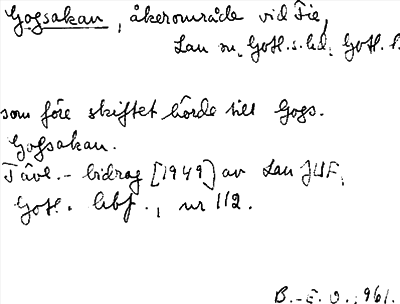 Gogsakan, åkerområde vid Fie,
Lau sn, Gotl. s. hd, Gotl. l.
som före skiftet hörde till Gogs.
Gogsakan.
Tävl.-bidrag [1949] av Lau JUF,
Gotl. lbf., nr 112.
B.-E. O. 1961.